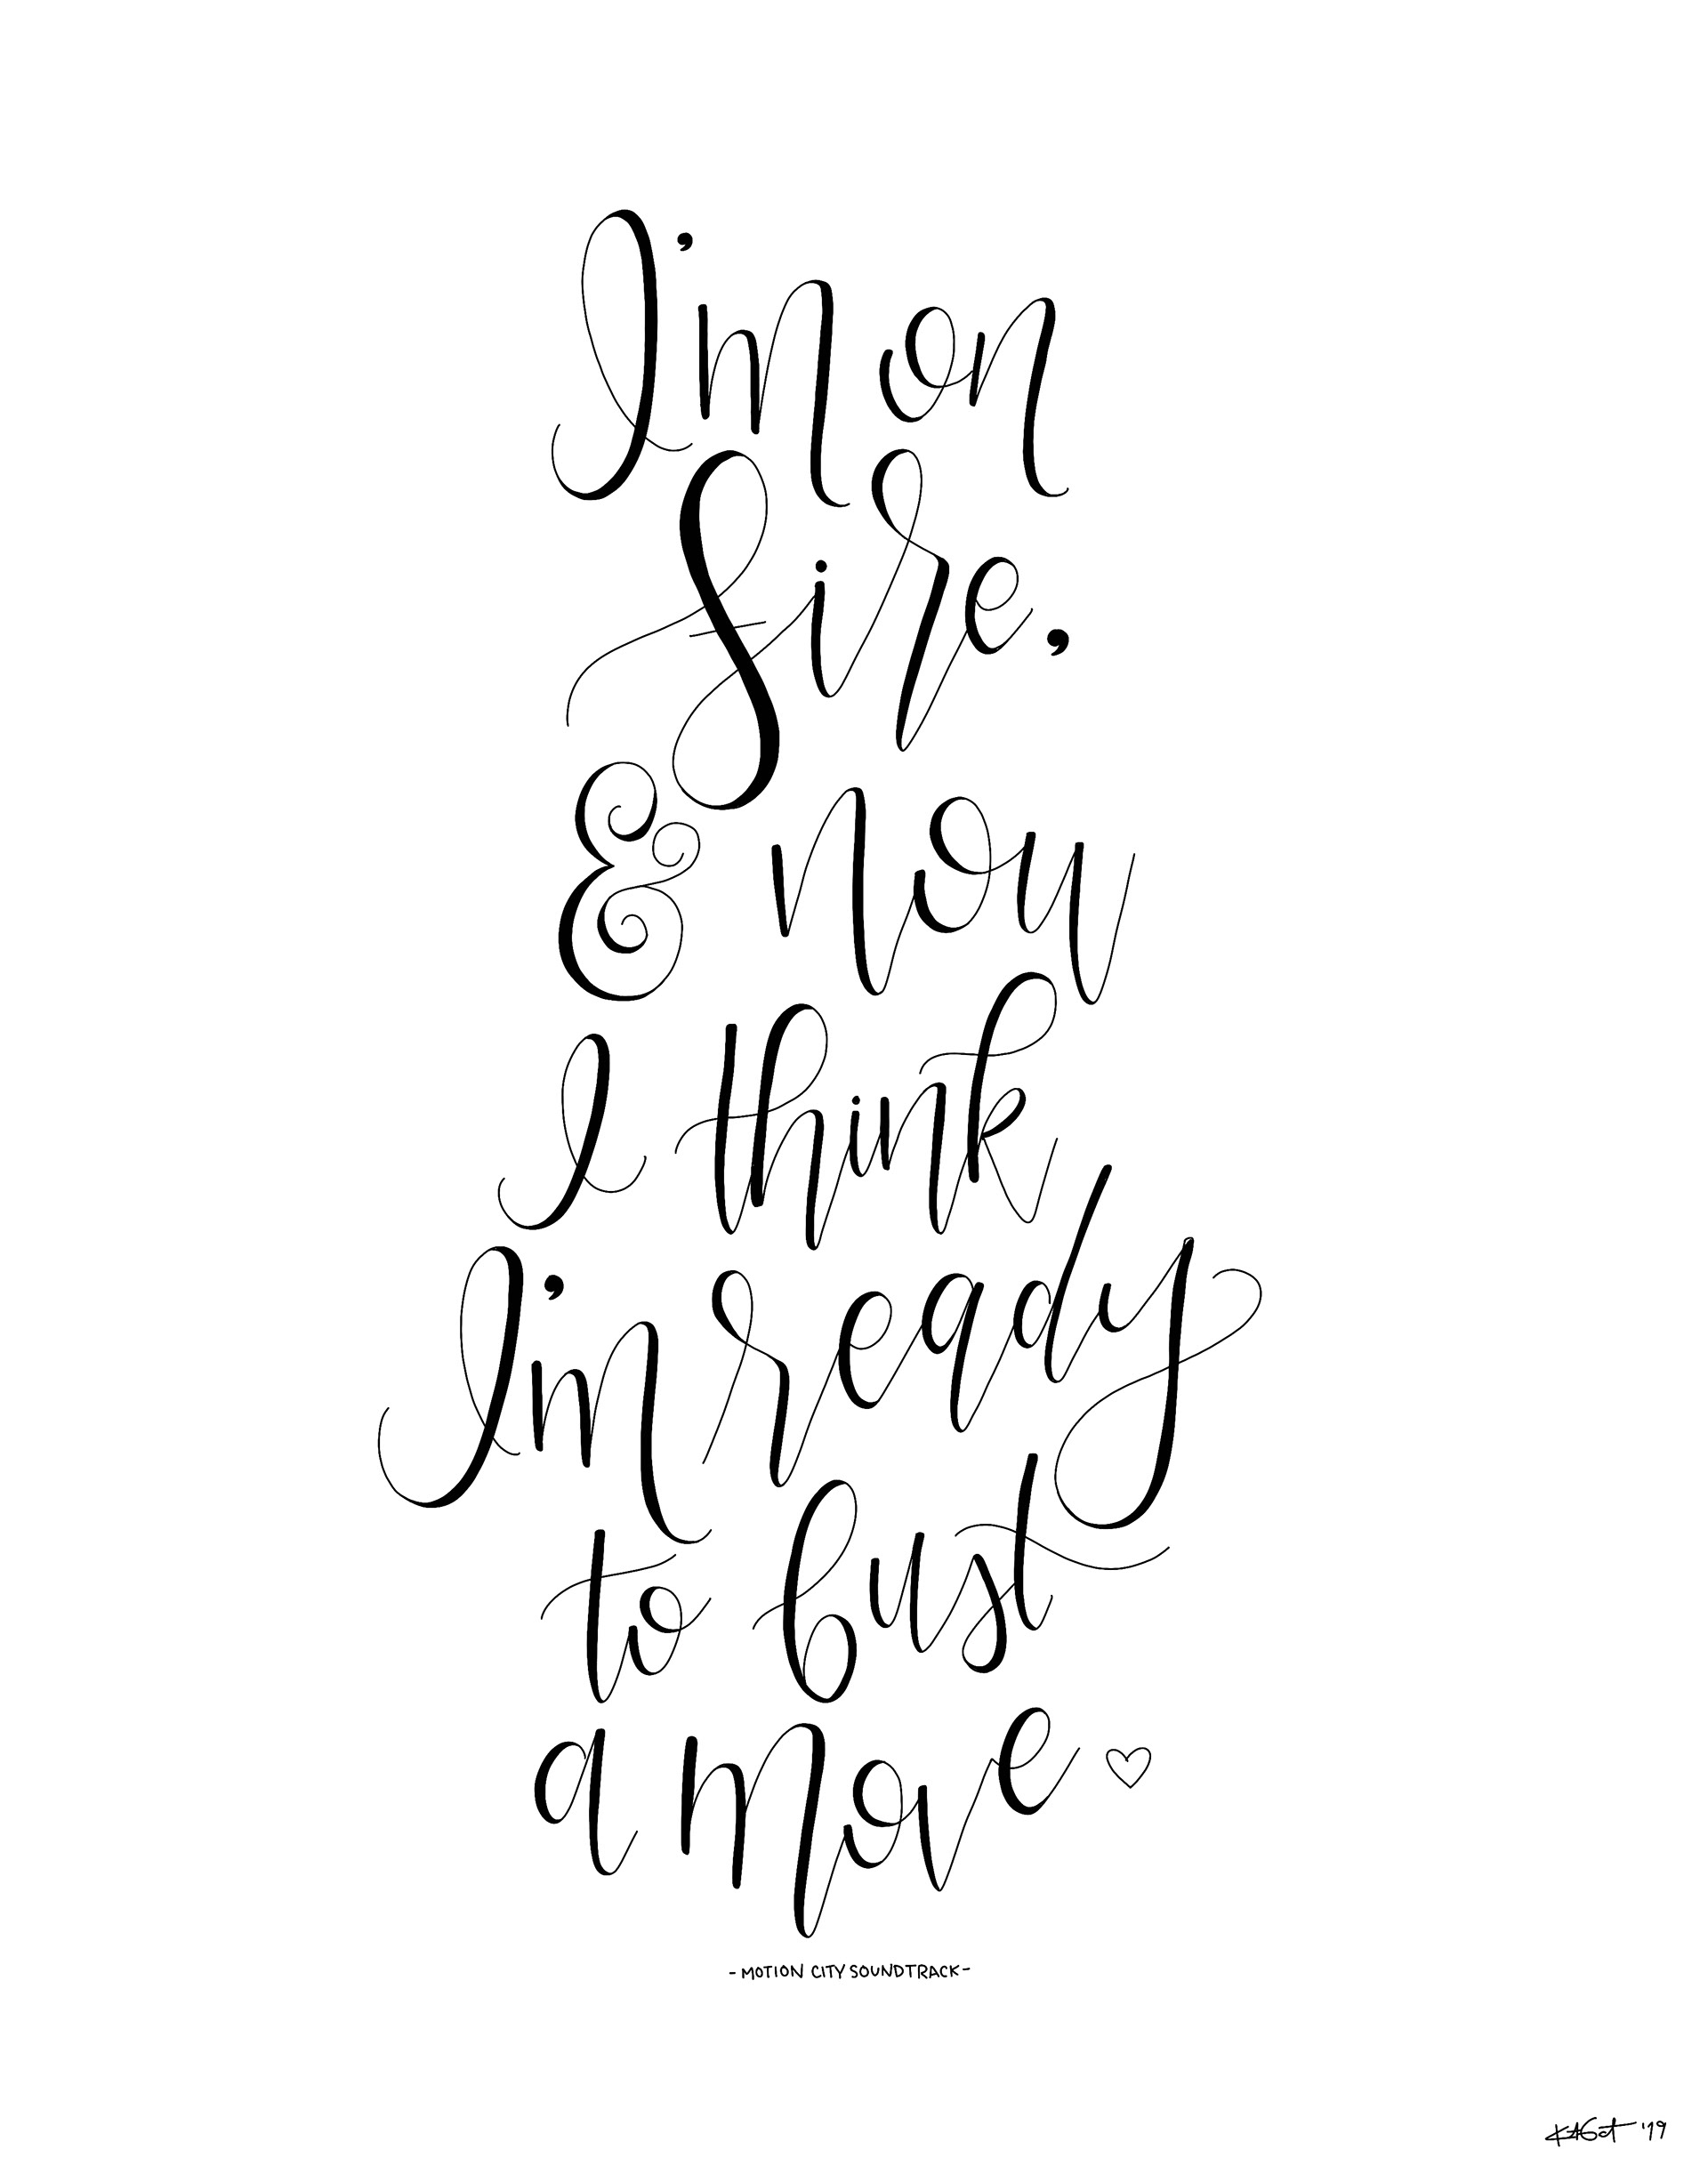 I'm on
fire,
& now
I think
I'm ready
to bust
a move
- MOTION CITY SOUNDTRACK -
'19